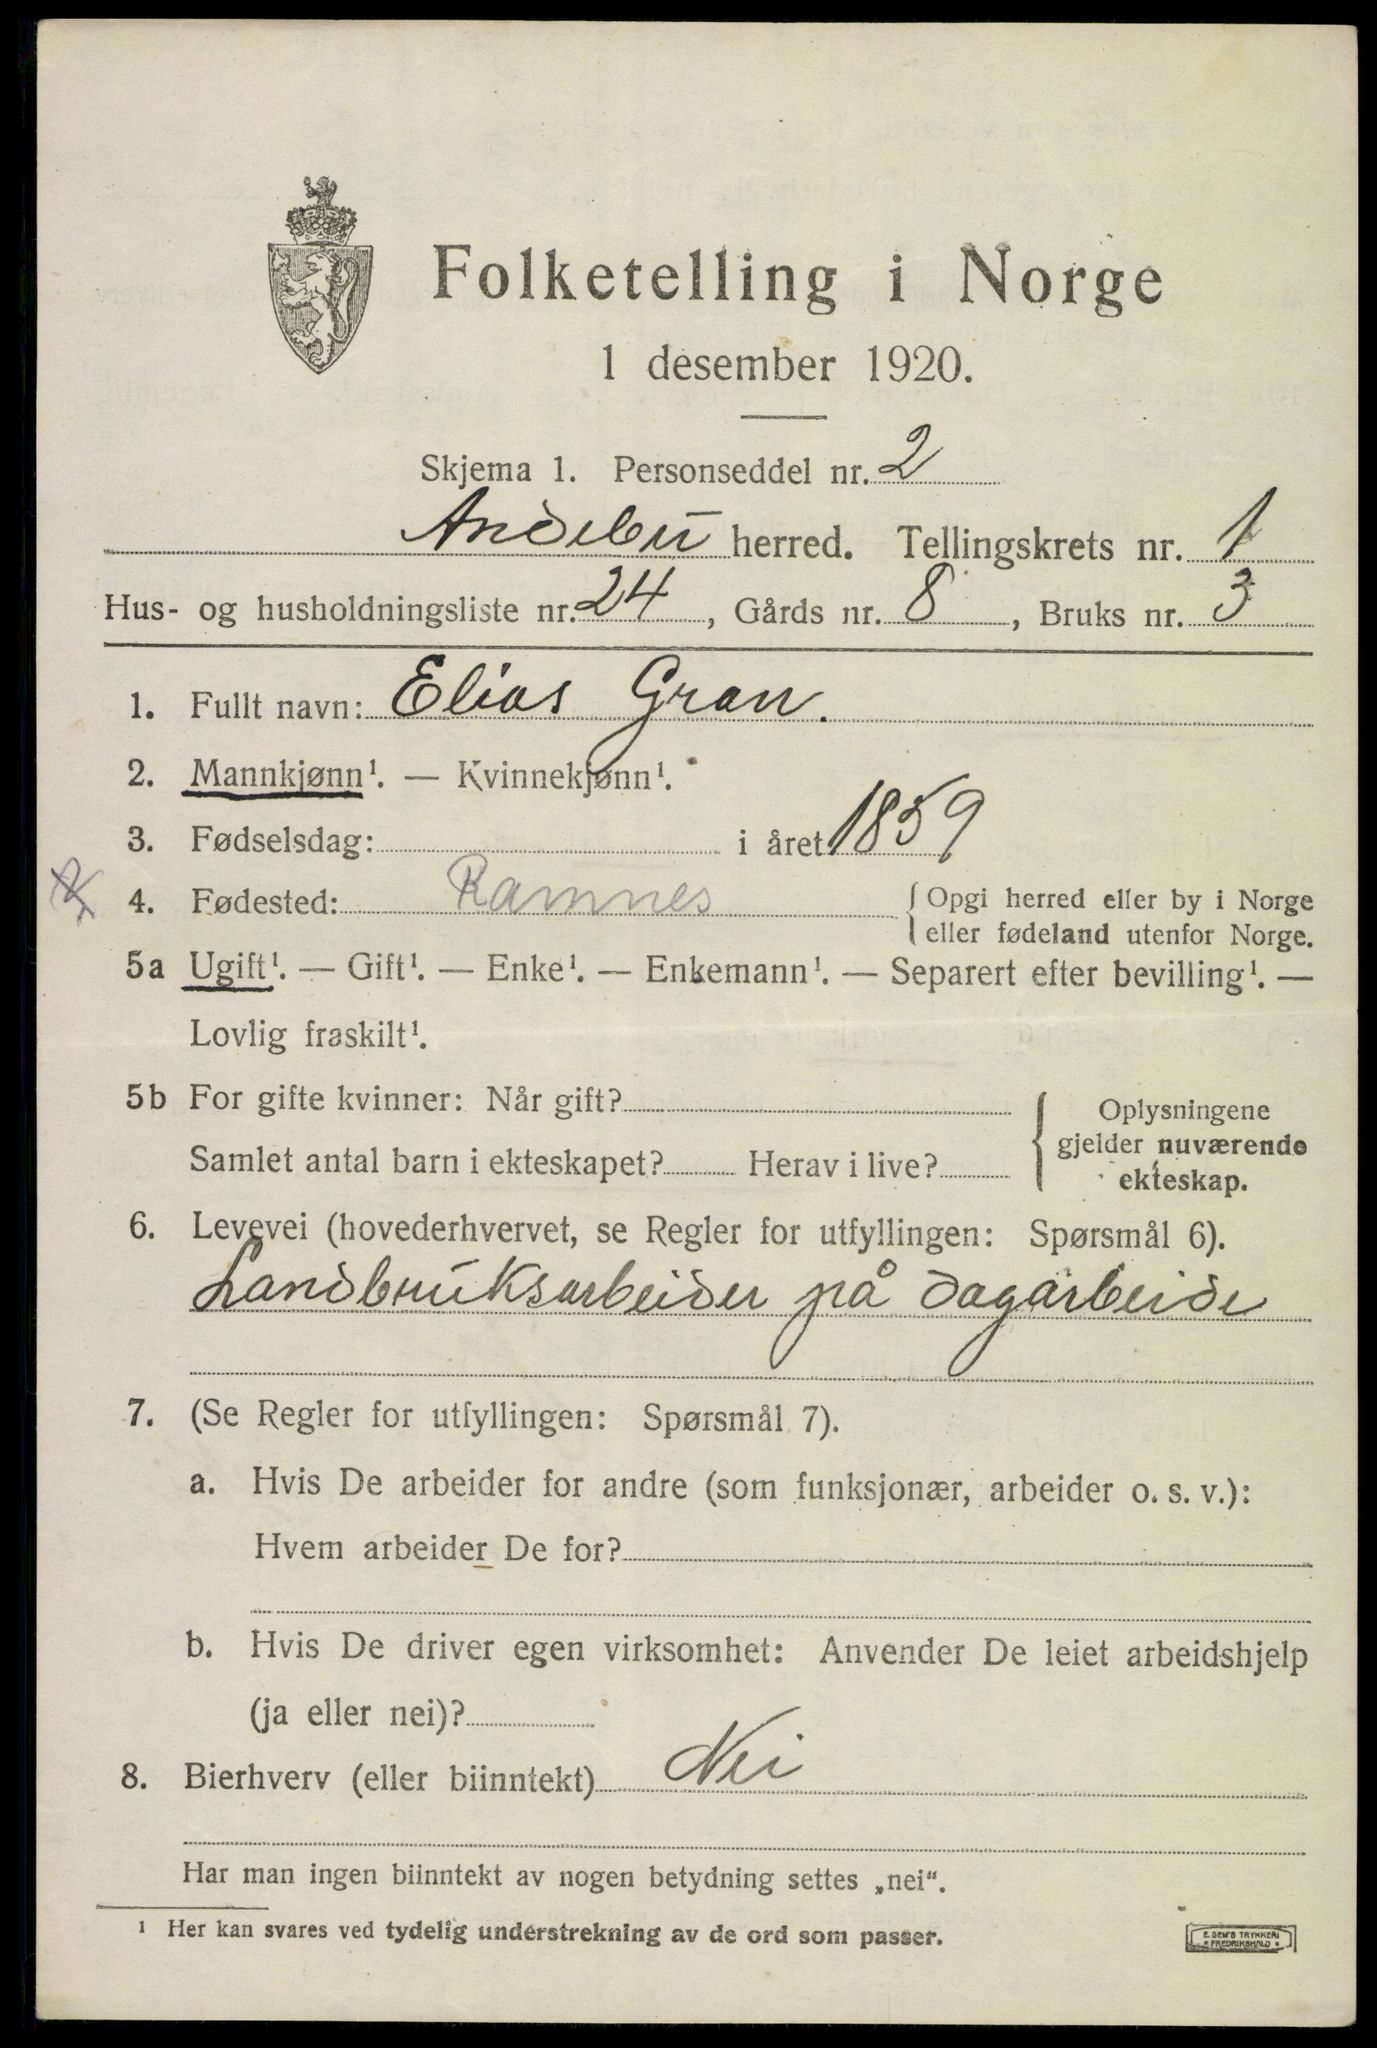 Folketelling i Norge
1 desember 1920.
Skjema 1. Personseddel nr. 2
Andebu herred. Tellingskrets nr. 1
Hus- og husholdningsliste nr. 24, Gårds nr. 8, Bruks nr. 3
1. Fullt navn: Elias Gran.
2. Mannkjønn¹. — Kvinnekjønn¹.
3. Fødselsdag: i året 1859
4. Fødested: Ramnes {Opgi herred eller by i Norge
eller fødeland utenfor Norge.
5a Ugift¹. — Gift¹. — Enke¹. — Enkemann¹. — Separert efter bevilling¹. —
Lovlig fraskilt¹.
5b For gifte kvinner: Når gift? Oplysningene
gjelder nuværende
Samlet antal barn i ekteskapet? Herav i live? ekteskap.
6. Levevei (hovederhvervet, se Regler for utfyllingen: Spørsmål 6).
Landbruksarbeider på dagarbeide
7. (Se Regler for utfyllingen: Spørsmål 7).
a. Hvis De arbeider for andre (som funksjonær, arbeider o. s. v.):
Hvem arbeider De for?
b. Hvis De driver egen virksomhet: Anvender De leiet arbeidshjelp
(ja eller nei)?
8. Bierhverv (eller biinntekt) Nei
Har man ingen biinntekt av nogen betydning settes „nei“.
¹ Her kan svares ved tydelig understrekning av de ord som passer.
E. SEM'S TRYKKERI
FREDRIKSHALD